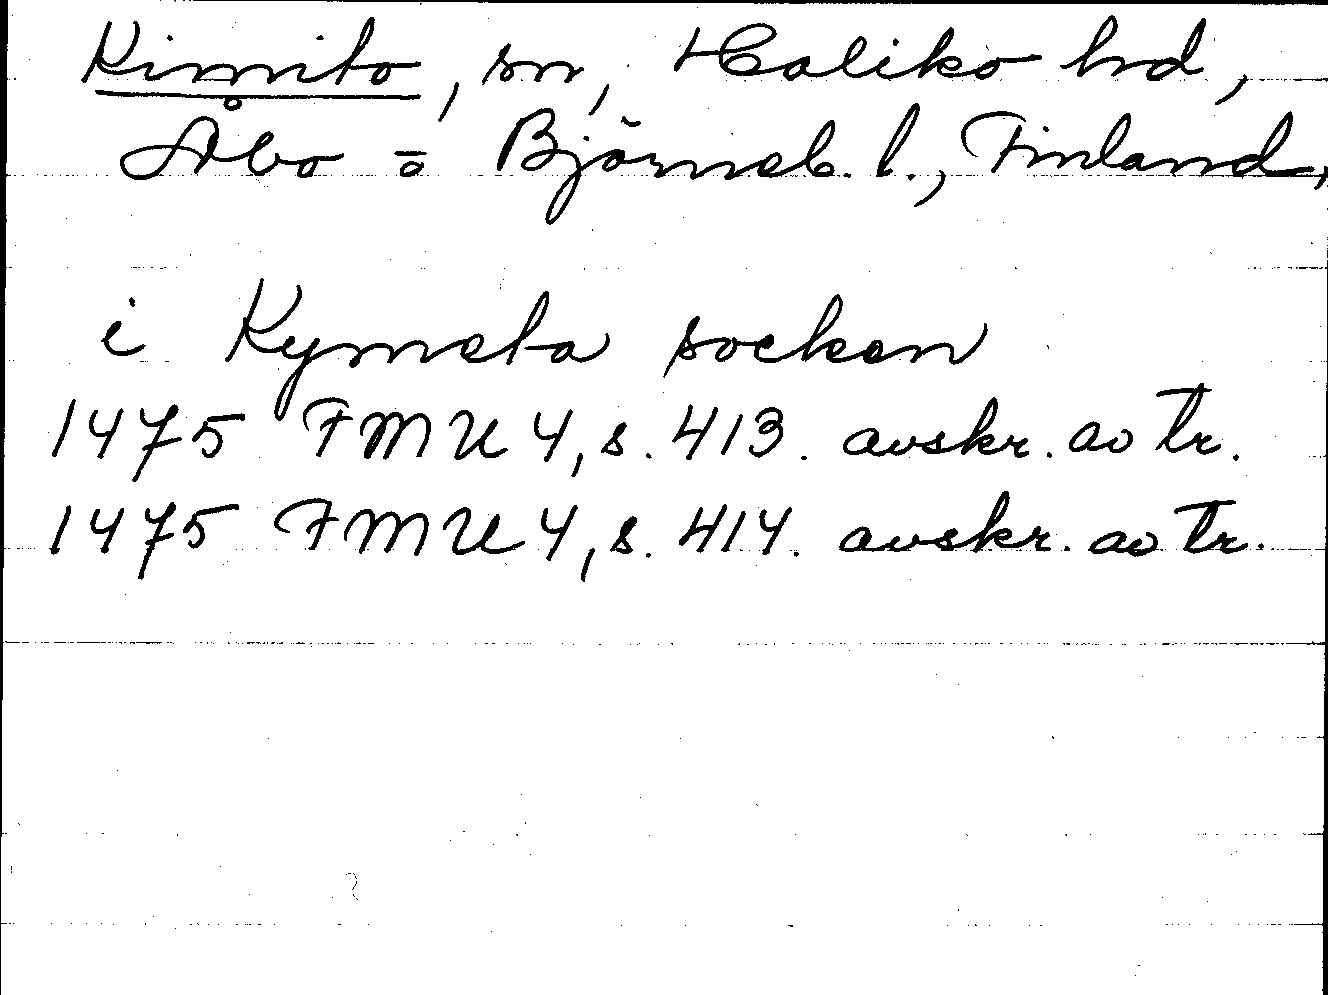 Kimito, sn, Haliko hd,
Åbo o Björneb. l., Finland,
i Kymeta socken
1475 FMU 4, s. 413. avskr. av tr.
1475 FMU 4, s. 414. avskr. av tr.